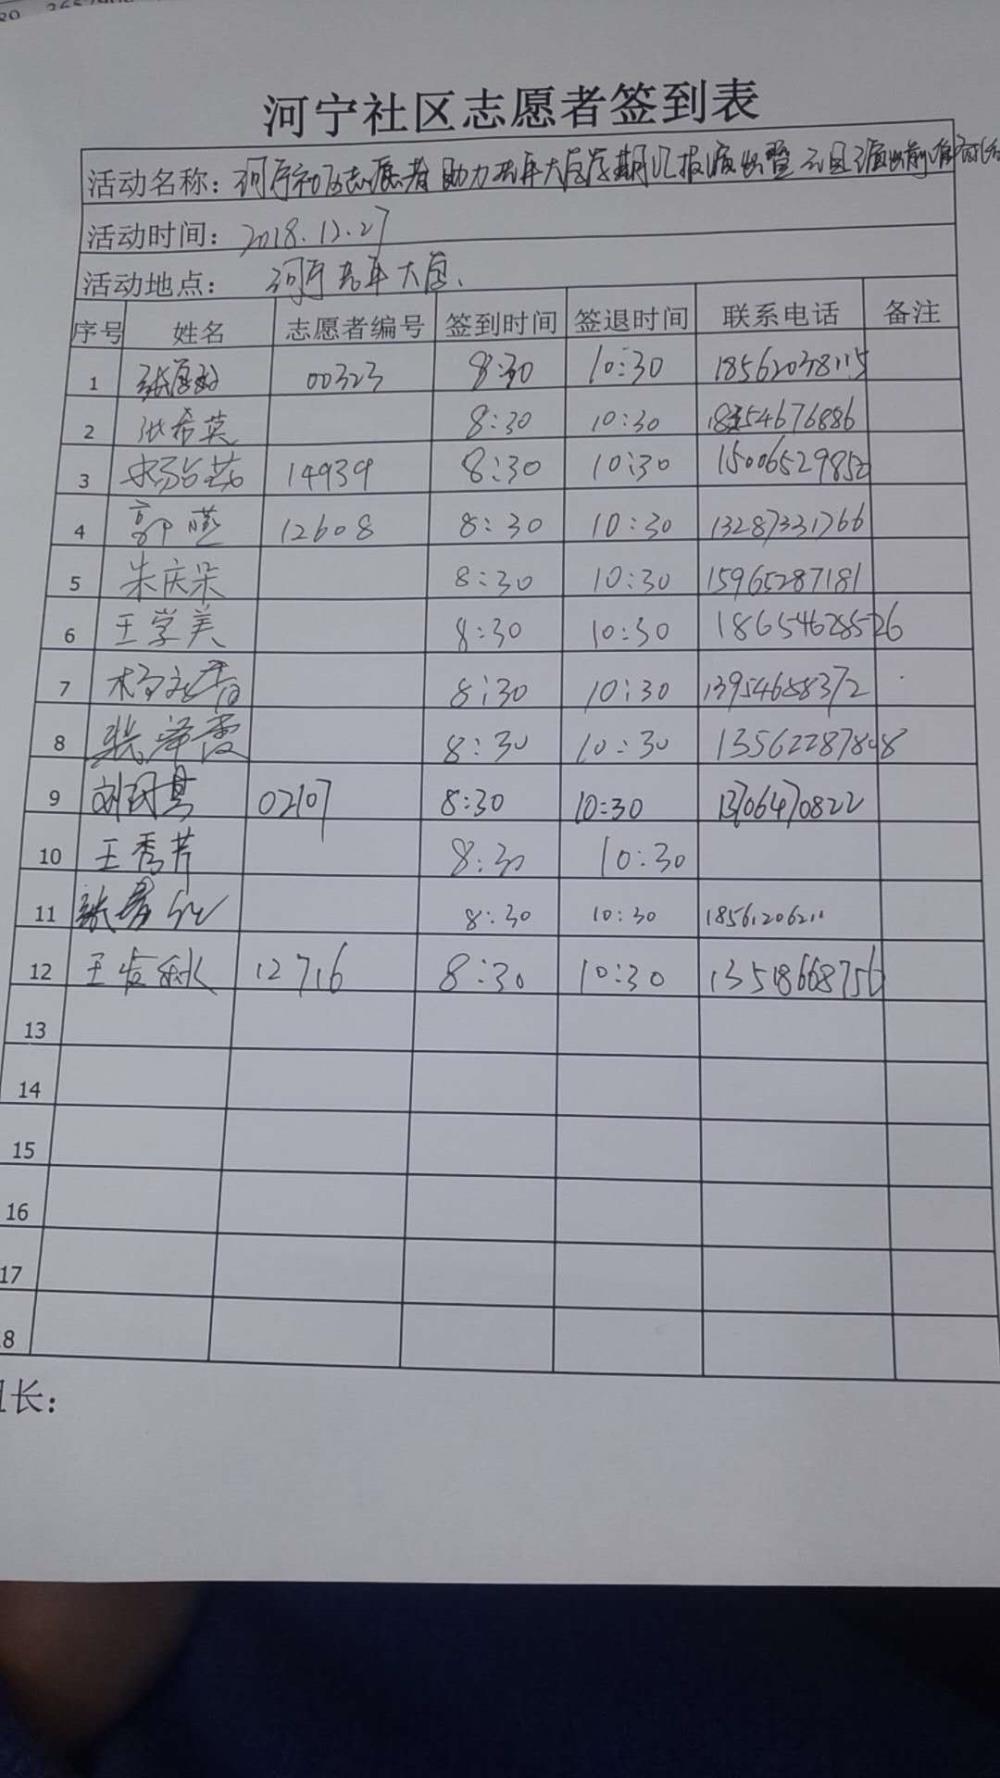 河宁社区志愿者签到表
活动名称：河宁社区志愿者助力老年大学学期汇报演出暨元旦演出前
活动时间：2018.12.27
活动地点：河宁老年大学.
序号 姓名 志愿者编号 签到时间 签退时间 联系电话 备注
1 00323 8:30 10:30 18562038115
2 张希英 8:30 10:30 54676886
3 14939 8:30 10:30 15006529852
4 郭 12608 8:30 10:30 13287331766
5 朱庆朵 8:30 10:30 15965287181
6 王学美 8:30 10:30 18654628526
7 杨 8:30 10:30 13954688372
8 8:30 10:30 13562287808
9 刘 02107 8:30 10:30 13706470822
10 王秀芹 8:30 10:30
11 张 8:30 10:30 18561206211
12 王 12716 8:30 10:30 13518668756
13
14
15
16
17
8
长：